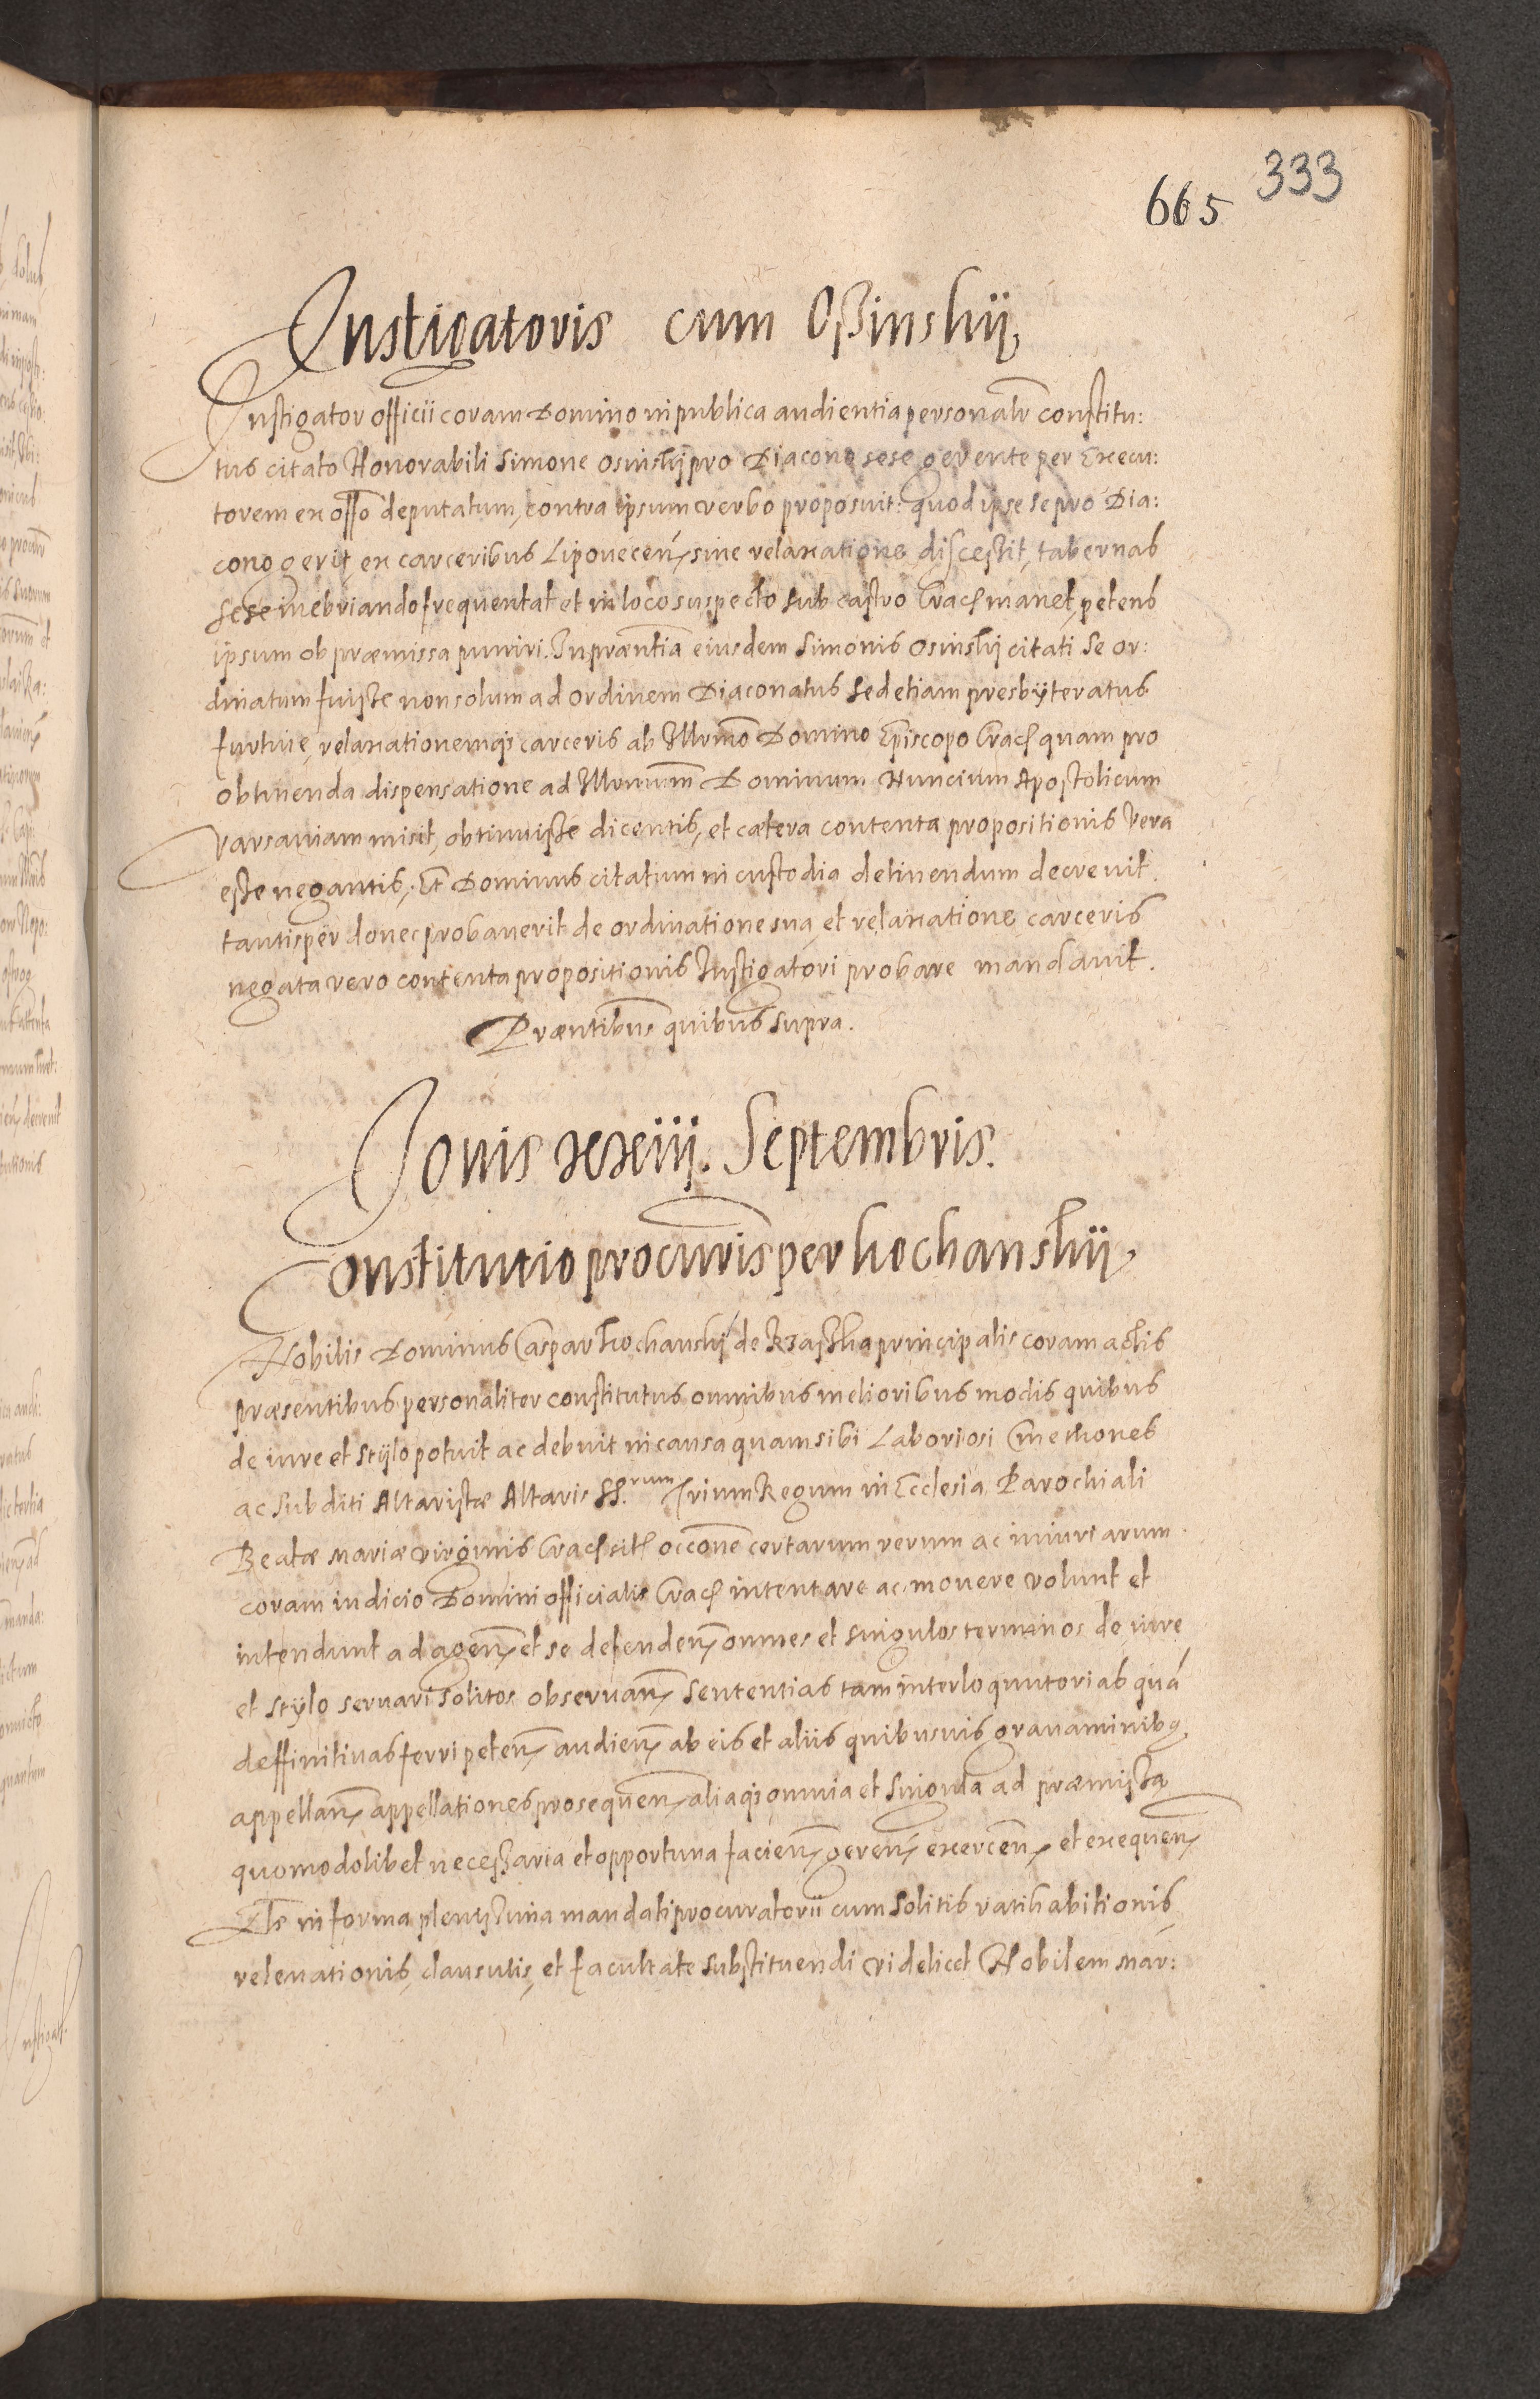 333
665
Instigatoris cum Ossinskij
Instigator officii coram Domino in publica audientia personalr constitu:
tus citato Honorabili Simone Osinskj pro Diacono sese gerente per Execu:
torem ex offo deputatum, contra ipsum verbo proposuit: quod ipse se pro Dia:
cono gerit, ex carceribus Lipovecen sine relaxatione discessit, tabernas
sese inebriando frequentat et in loco suspecto sub castro Crac manet, petens
ipsum ob præmissa puniri. In præntia eiusdem Simonis Osinskij citati se or:
dinatum fuisse non solum ad ordinem Diaconatus sed etiam presbÿteratus
furtive, relaxationemqs carceris ab Illrmo Domino Episcopo Crac quam pro
obtinenda dispensatione ad Illrmum Dominum Nuncium Apostolicum
Varsaviam misit, obtinuisse dicentis, et cætera contenta propositionis vera
esse negantis, Et Dominus citatum in custodia detinendum decrevit
tantisper donec probaverit de ordinatione sua, et relaxatione carceris
negata vero contenta propositionis Instigatori probare mandavit.
Præntibus quibus supra.
Jovis xxiiij. Septembris.
Constitutio procuris per kochanskij
Nobilis Dominus Caspar kochanskj de principalis coram actis
præsentibus personaliter constitutus omnibus melioribus modis quibus
de iure et stÿlo potuit ac debuit in causa quam sibi Laboriosi Cmethones
ac subditi Altaristæ Altaris SS.rum Trium Regum in Ecclesia Parochiali
Beatæ Mariæ virginis Crac sitæ occone certarum rerum ac iniuriarum
coram iudicio Domini officialis Crac intentare ac movere volunt et
intendunt ad agen et se defenden omnes et singulos terminos de iure
et stÿlo servari solitos observan sententias tam interloquutorias quá
deffinitivas ferri peten audien ab eis et aliis quibusvis gravaminibq
appellan appellationes prosequen aliaqs omnia et singula ad præmissa
quomodolibet necessaria et opportuna facien geren exercen et exequen
Ets in forma plenissima mandati procuratorii cum solitis ratihabitionis,
relevationis, clausulis, et facultate substituendi videlicet Nobilem Mar: